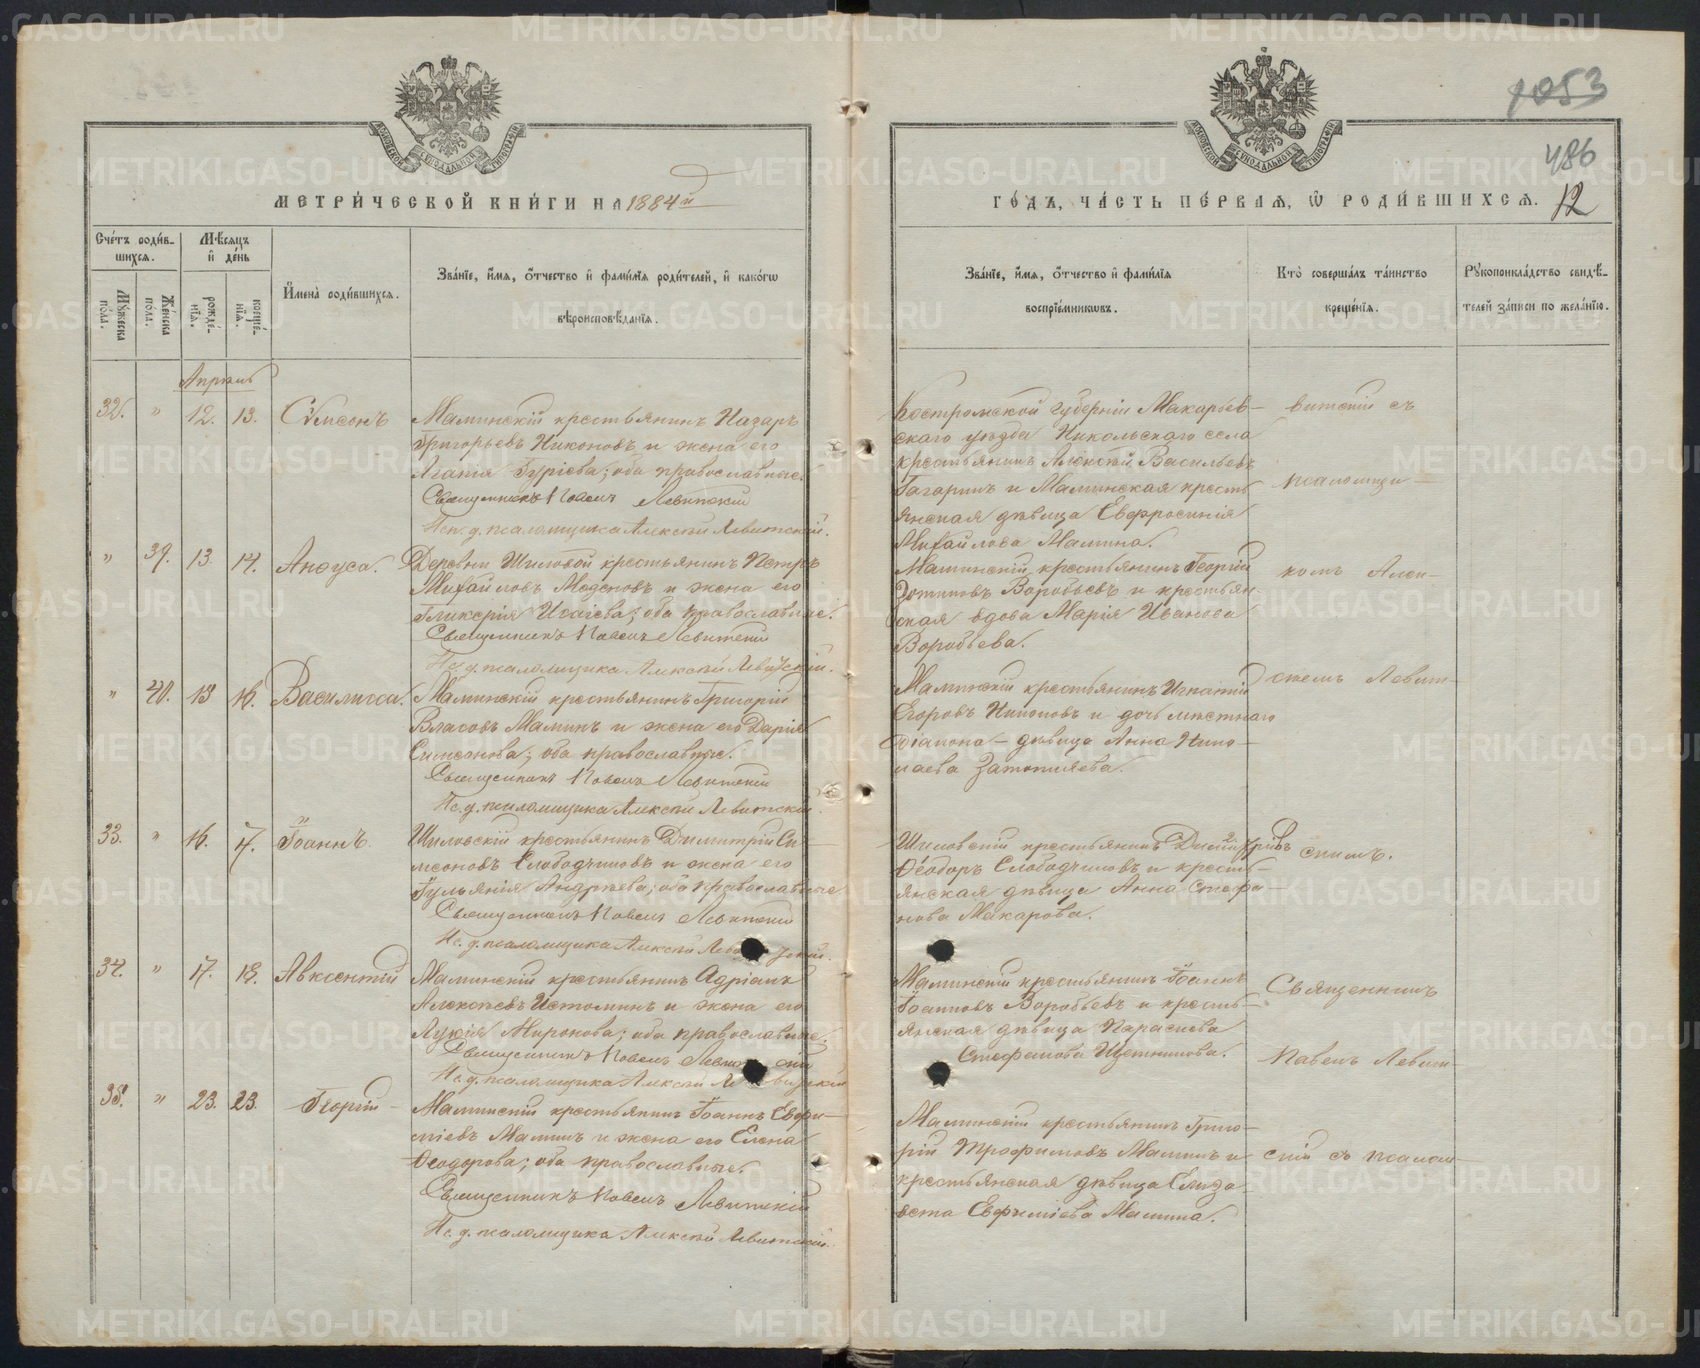 1053
486
12
МЕТРИ́ЧЕСКОЙ КНИ́ГИ НА 1884й
ГО́ДЪ, ЧА́СТЬ ПЕ́РВАЯ, Ѡ҆ РОДИ́ВШИХСЯ.
Сче́тъ роди́в-
шихся.
Мѣ́сяцъ
и҆ де́нь
Мꙋ́жеска по́ла.
Же́нска по́ла.
рожде́-нїя.
креще́-нїя.
И҆мена̀ роди́вшихся.
Зва́нїе, и҆́мя, ѻ҆́тчество и҆ фами́лїя роди́телей, и҆ како́гѡ
вѣроисповѣ́данїя.
Зва́нїе, и҆́мя, ѻ҆́тчество и҆ фами́лїя
воспрїе́мниковъ.
Кто̀ соверша́лъ та́инство
креще́нїя.
Рꙋкоприкла́дство свидѣ́-
телей за́писи по жела́нїю.
Апрѣль
32. " 12. 13. Сѵмеонъ
Маминскій крестьянинъ Назаръ
Григорьевъ Никоновъ и жена его
Агапія Гурієва; оба православные.
Священникъ Павелъ Левитскій
Исп. д. псаломщика Алексѣй Левитскій.
Костромской губерніи Макарьев-
скаго уѣзда Никольскаго села
крестьянинъ Алексѣй Васильевъ
Гагаринъ и Маминская кресть
янская дѣвица Евфросинія
Михайлова Мамина.
" 39. 13. 14. Анѳуса.
Деревни Шиловой крестьянинъ Петръ
Михайловъ Меденовъ и жена его
Гликерія Исаієва; оба православные.
Священникъ Павелъ Левитскій
Ис. д. псаломщика Алексѣй Левитскій.
Маминскій крестьянинъ Георгій
Зотиковъ Воробьевъ и крестьян-
ская вдова Марія Иванова
Воробьева.
" 40. 13 16. Василисса.
Маминскій крестьянинъ Григорій
Власовъ Маминъ и жена его Дарія
Симеонова; оба православные.
Священникъ Павелъ Левитскій
Ис. д. псаломщика Алексѣй Левитскій.
Маминскій крестьянинъ Игнатій
Егоровъ Никоновъ и дочь мѣстнаго
діакона - дѣвица Анна Нико-
лаева Затопляева.
33. " 16. 17. Іоаннъ.
Шиловскій крестьянинъ Димитрій Си-
меоновъ Слободчиковъ и жена его
Іуліанія Андреева; оба православные
Священникъ Павелъ Левитскій
Ис. д. псаломщика Алексѣй Левитскій.
Ѳеодоръ Слободчиковъ и кресть-
янская дѣвица Анна Стефа-
нова Макарова.
34. " 17. 18. Авксентій
Маминскій крестьянинъ Адріанъ
Алексѣевъ Истоминъ и жена его
Лукія Миронова; оба православные.
Священникъ Павелъ Левитскій
Ис. д. псаломщика Алексѣй Левитскій
Маминскій крестьянинъ Іоаннъ
Іоанновъ Воробьевъ и кресть-
янская дѣвица Параскева
Стефанова Щетникова.
35. " 23. 23. Георгій
Маминскій крестьянинъ Іоаннъ Евфи-
міевъ Маминъ и жена его Елена
Ѳеодорова; оба православные.
Священникъ Павелъ Левитскій
Ис. д. псаломщика Алексѣй Левитскій.
Маминскій крестьянинъ Григо-
рій Трофимовъ Маминъ и
крестьянская дѣвица Елиза-
вета Евфиміева Мамина.
витскій съ
псаломщи-
комъ Алек-
сѣемъ Левит-
скимъ.
Священникъ
Павелъ Левит-
скій съ псалом-
METRIKI.GASO-URAL.RU